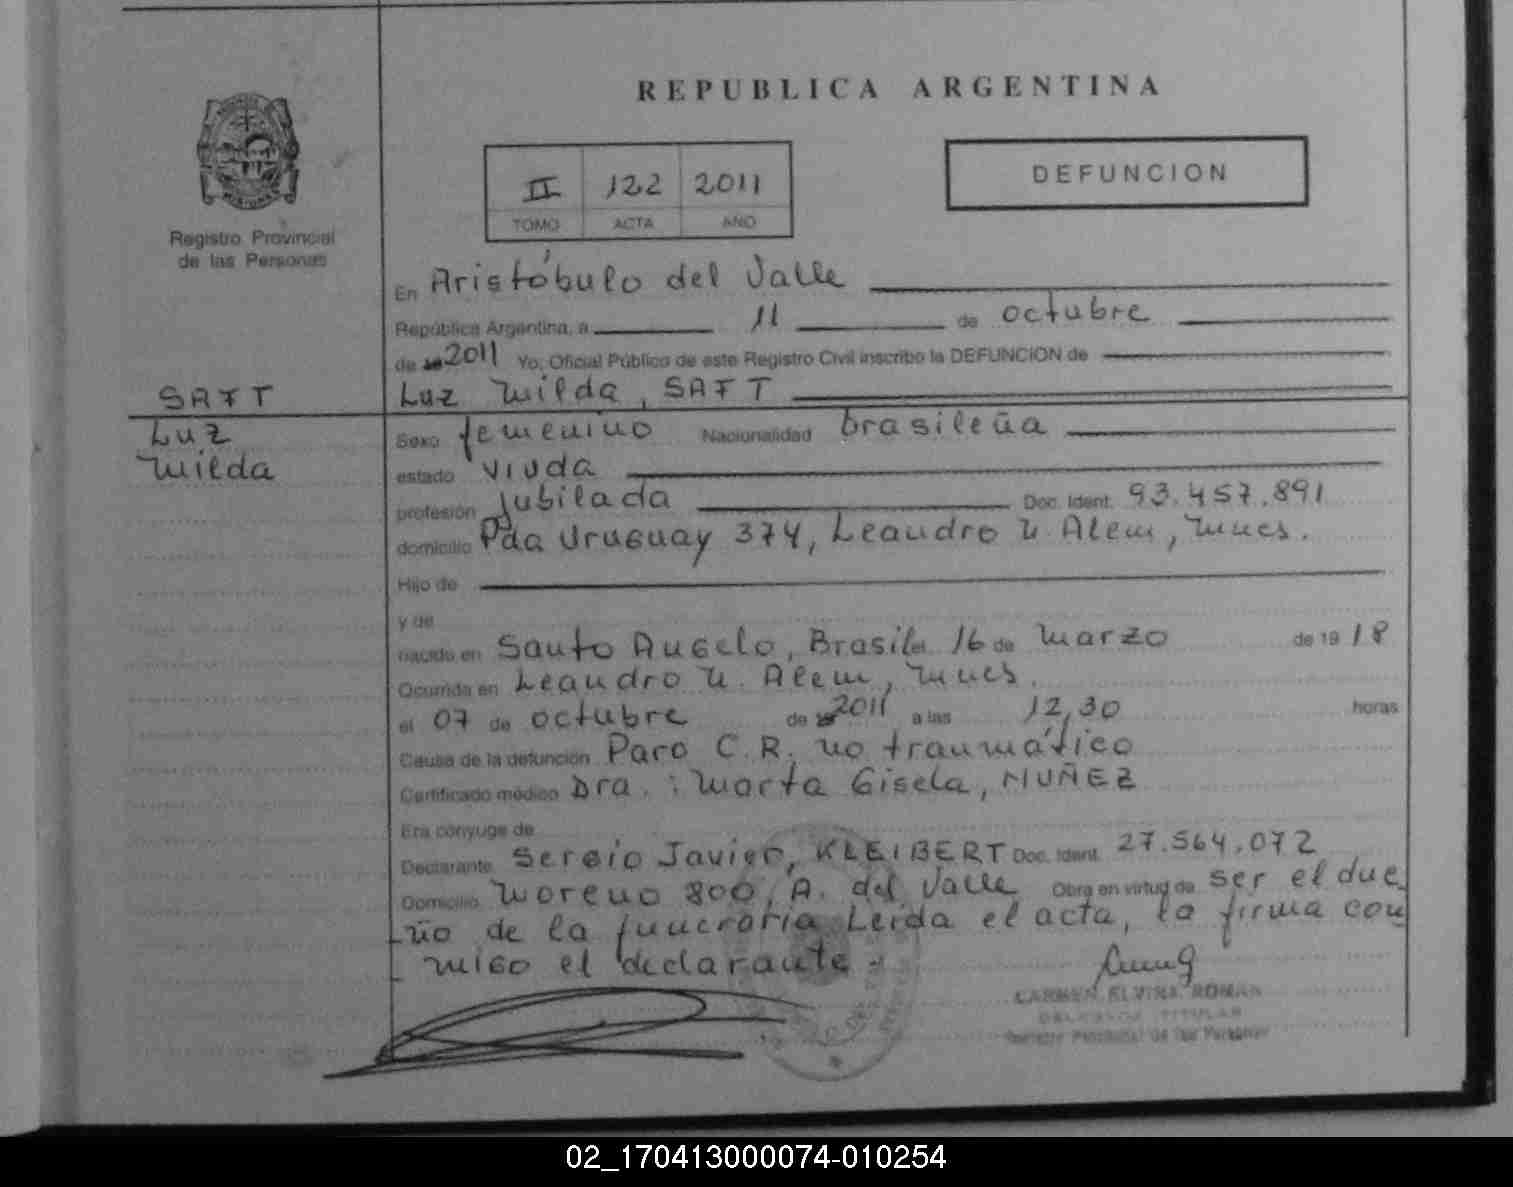 REPUBLICA ARGENTINA
II 122 2011
TOMO ACTA AÑO
DEFUNCION
Registro Provincial
de las Personas
En Aristóbulo del Valle
República Argentina, a 11 de octubre
de 2011 Yo, Oficial Público de este Registro Civil inscribo la DEFUNCION de
SAFT
Luz Milda, SAFT
Luz
Milda
Sexo femenino Nacionalidad brasileña
estado viuda
profesión jubilada Doc. Ident. 93.457.891
domicilio Pda Uruguay 374, Leandro N. Alem, Mnes.
Hijo de
y de
nacido en Santo Angelo, Brasil el 16 de Marzo de 19 18
Ocurrida en Leandro N. Alem, Mnes.
el 07 de octubre de 2011 a las 12,30 horas
Causa de la defunción Paro C.R. no traumático
Certificado médico Dra.: Marta Gisela, MUÑEZ
Era cónyuge de
Declarante Sergio Javier, KLEIBERT Doc. Ident. 27.564.072
Domicilio Moreno 800, A. del Valle Obra en virtud de ser el due
ño de la funeraria Leída el acta, la firma con
migo el declarante.-
CARMEN ELVIRA ROMAN
DELEGADA TITULAR
Registro Provincial de las Personas
02_170413000074-010254